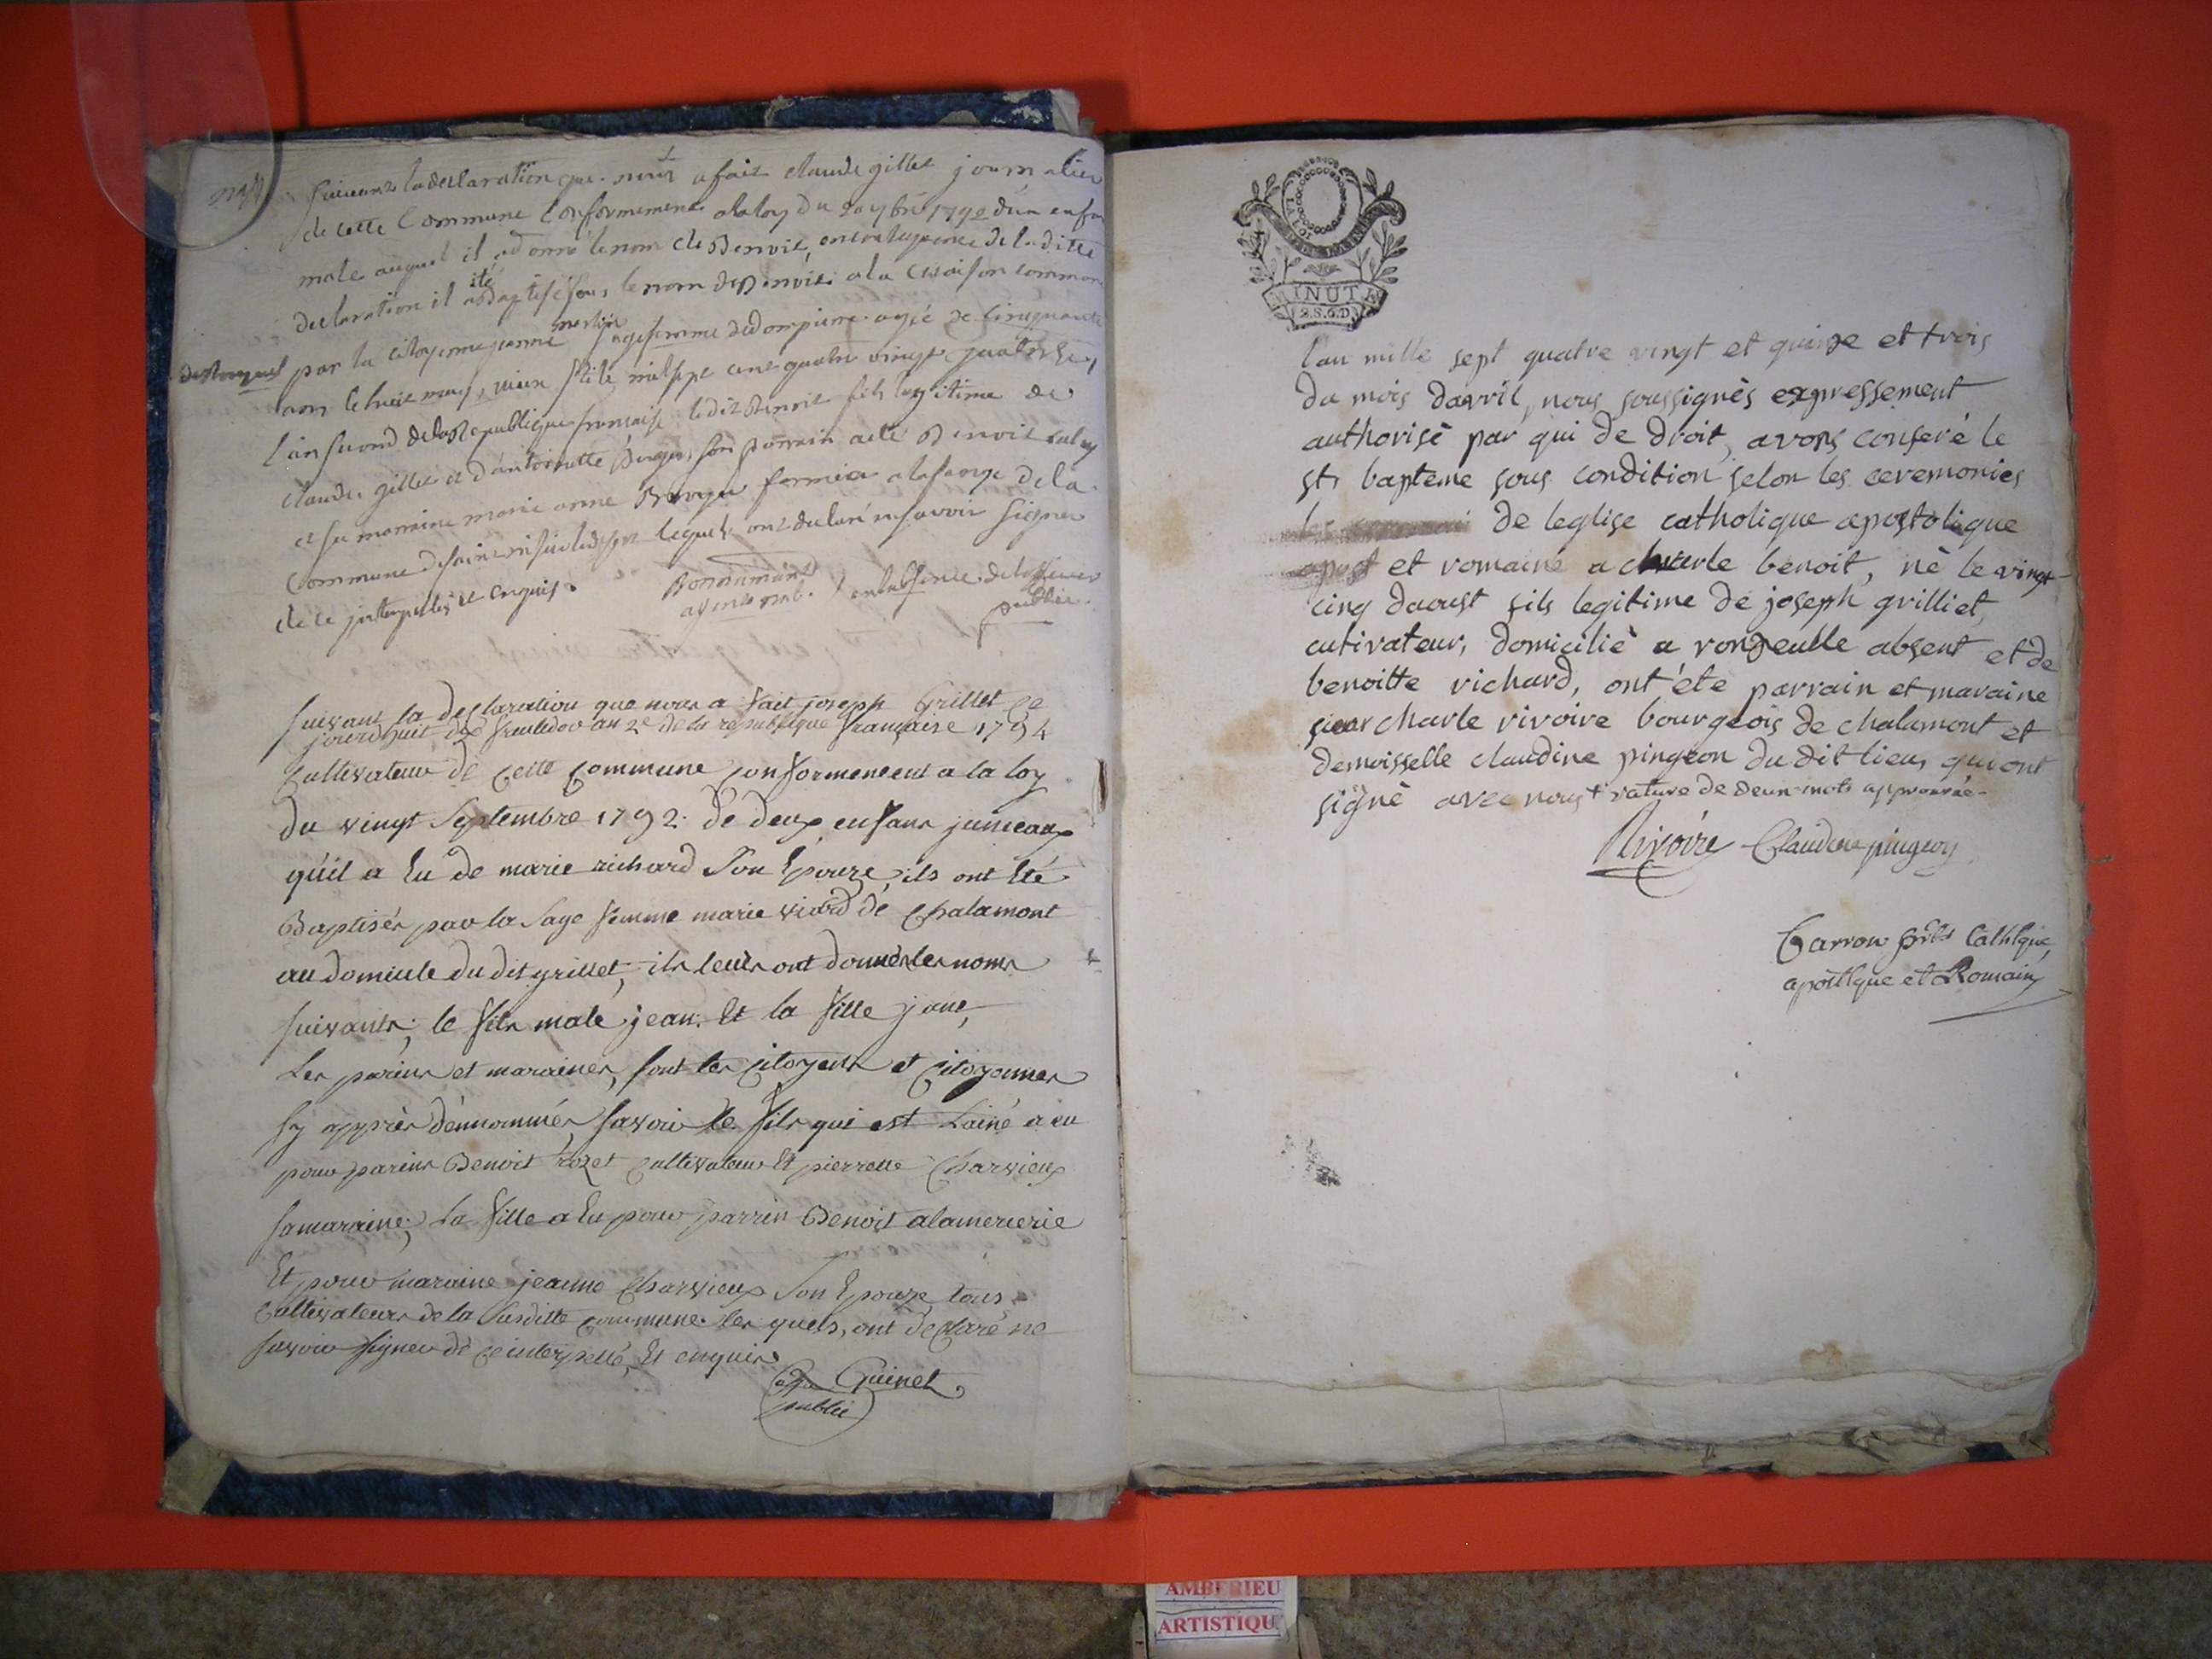 suivant la declaration que nous a fait claude gillet journalier
de cette Commune Conformement a la loy du 20 7bre 1792 d'un enfan
male auquel il a donné le nom de Benoit, de la ditte
declaration il a été Baptisé sous le nom de Benoit a la maison commune
par la citoyenne jeanne sage femme de dompierre agée de cinquante
ans le huit mars, vieux stile mil sept cent quatre vingt quatorze,
l'an second de la Republique française ledit Benoit fils legitime de
claude gillet et d'antoinette Berger, son parrain a été Benoit
et sa marraine marie anne Berger fermier a la farge de la
Commune de saint lequels ont declaré ne savoir signer
de ce interpellés et enquis.
Bonnamant
agent nat. / en l'absence de l'officier
public
suivant la declaration que nous a fait joseph Grillet ce
jourd'huit 2e de la republique française 1794
Cultivateur de cette commune conformement a la loy
du vingt Septembre 1792. de deux enfans jumeaux
qu'il a Eu de marie richard Son Epouze, ils ont Eté
Baptisés par la Sage femme marie viard de Chalamont
au domicile du dit grillet, ils leurs ont donnés les noms
suivants; le fils male jean. Et la fille jane,
Les parins et maraines, sont les citoyens et citoyennes
sy apprès dénnommés, savoir le fils qui est Lainé a eu
pour parins Benoit rozet cultivateur Et pierrette Charvieux
sa maraine; La fille a Eu pour parrin Benoit alamercerie
Et pour maraine jeanne Charvieux Son Epouze tous
Cultivateurs de la Susditte commune. les quels, ont declaré ne
savoir signer de ce interpellé, Et enquis
Guinet
public
MINUTE
2.S.6.D
LA LOI
l'an mille sept quatre vingt et quinze et trois
du mois davril, nous soussignés expressement
authorisé par qui de droit, avons conferé le
st bapteme sous condition selon les ceremonies
de leglise catholique apostolique
et romaine a charle benoit, né le vingt
cinq daoust fils legitime de joseph grilliet,
cutivateur, domicilié a ronzeulle absent et de
benoitte richard, ont été parrain et maraine
sieur charle rivoire bourgeois de chalamont et
demoisselle claudine pingeon du dit lieu, qui ont
signé avec nous + rature de deux mots approuvée
Rivoire Claudine pingeon
Carron prêt Cathlque,
apostlque et Romain
AMBERIEU
ARTISTIQU